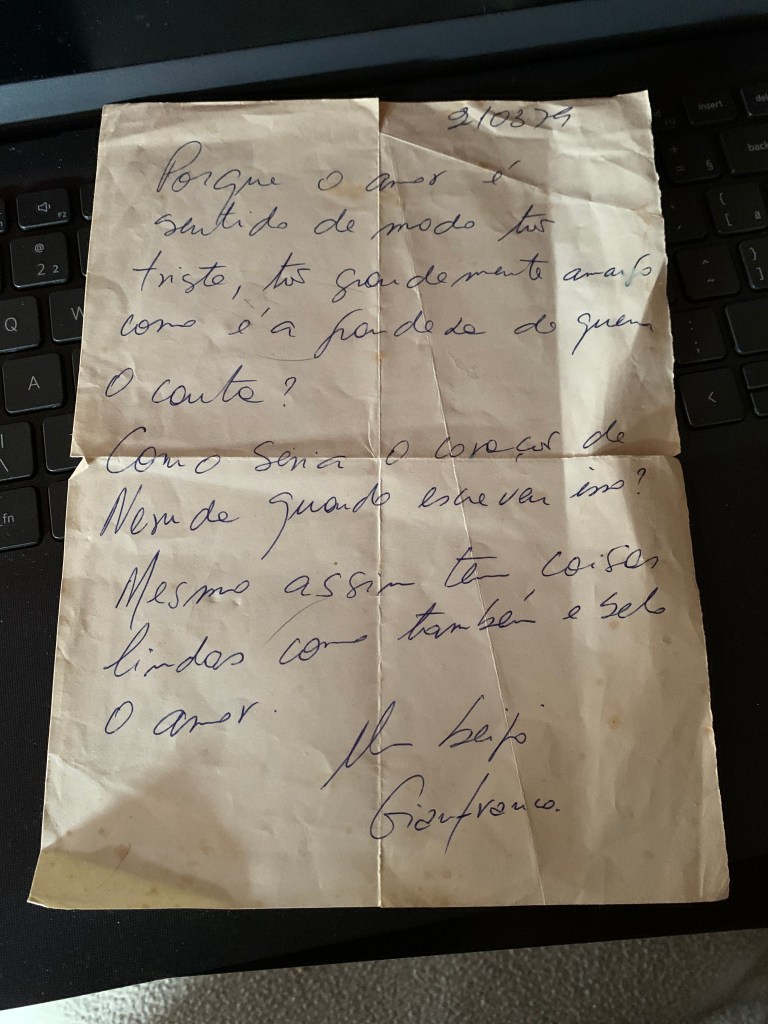 210379
Porque o amor é
sentido de modo tão
triste, tão grandemente amargo
como é a grandeza de quem
O canta?
Como seria o coração de
Neruda quando escreveu isso?
Mesmo assim tem coisas
lindas como também e belo
O amor.
Um beijo
Gianfranco.
insert
del
back
F2
@
2
2
Q
W
A
fn
+
=
§
[
{
]
}
~
^
:
;
<
\
|